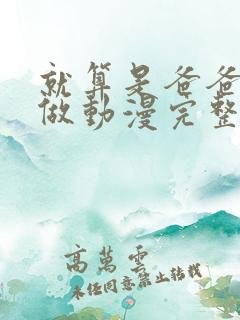 就算是爸爸
做動漫完整
高萬雲
未经同意禁止转载